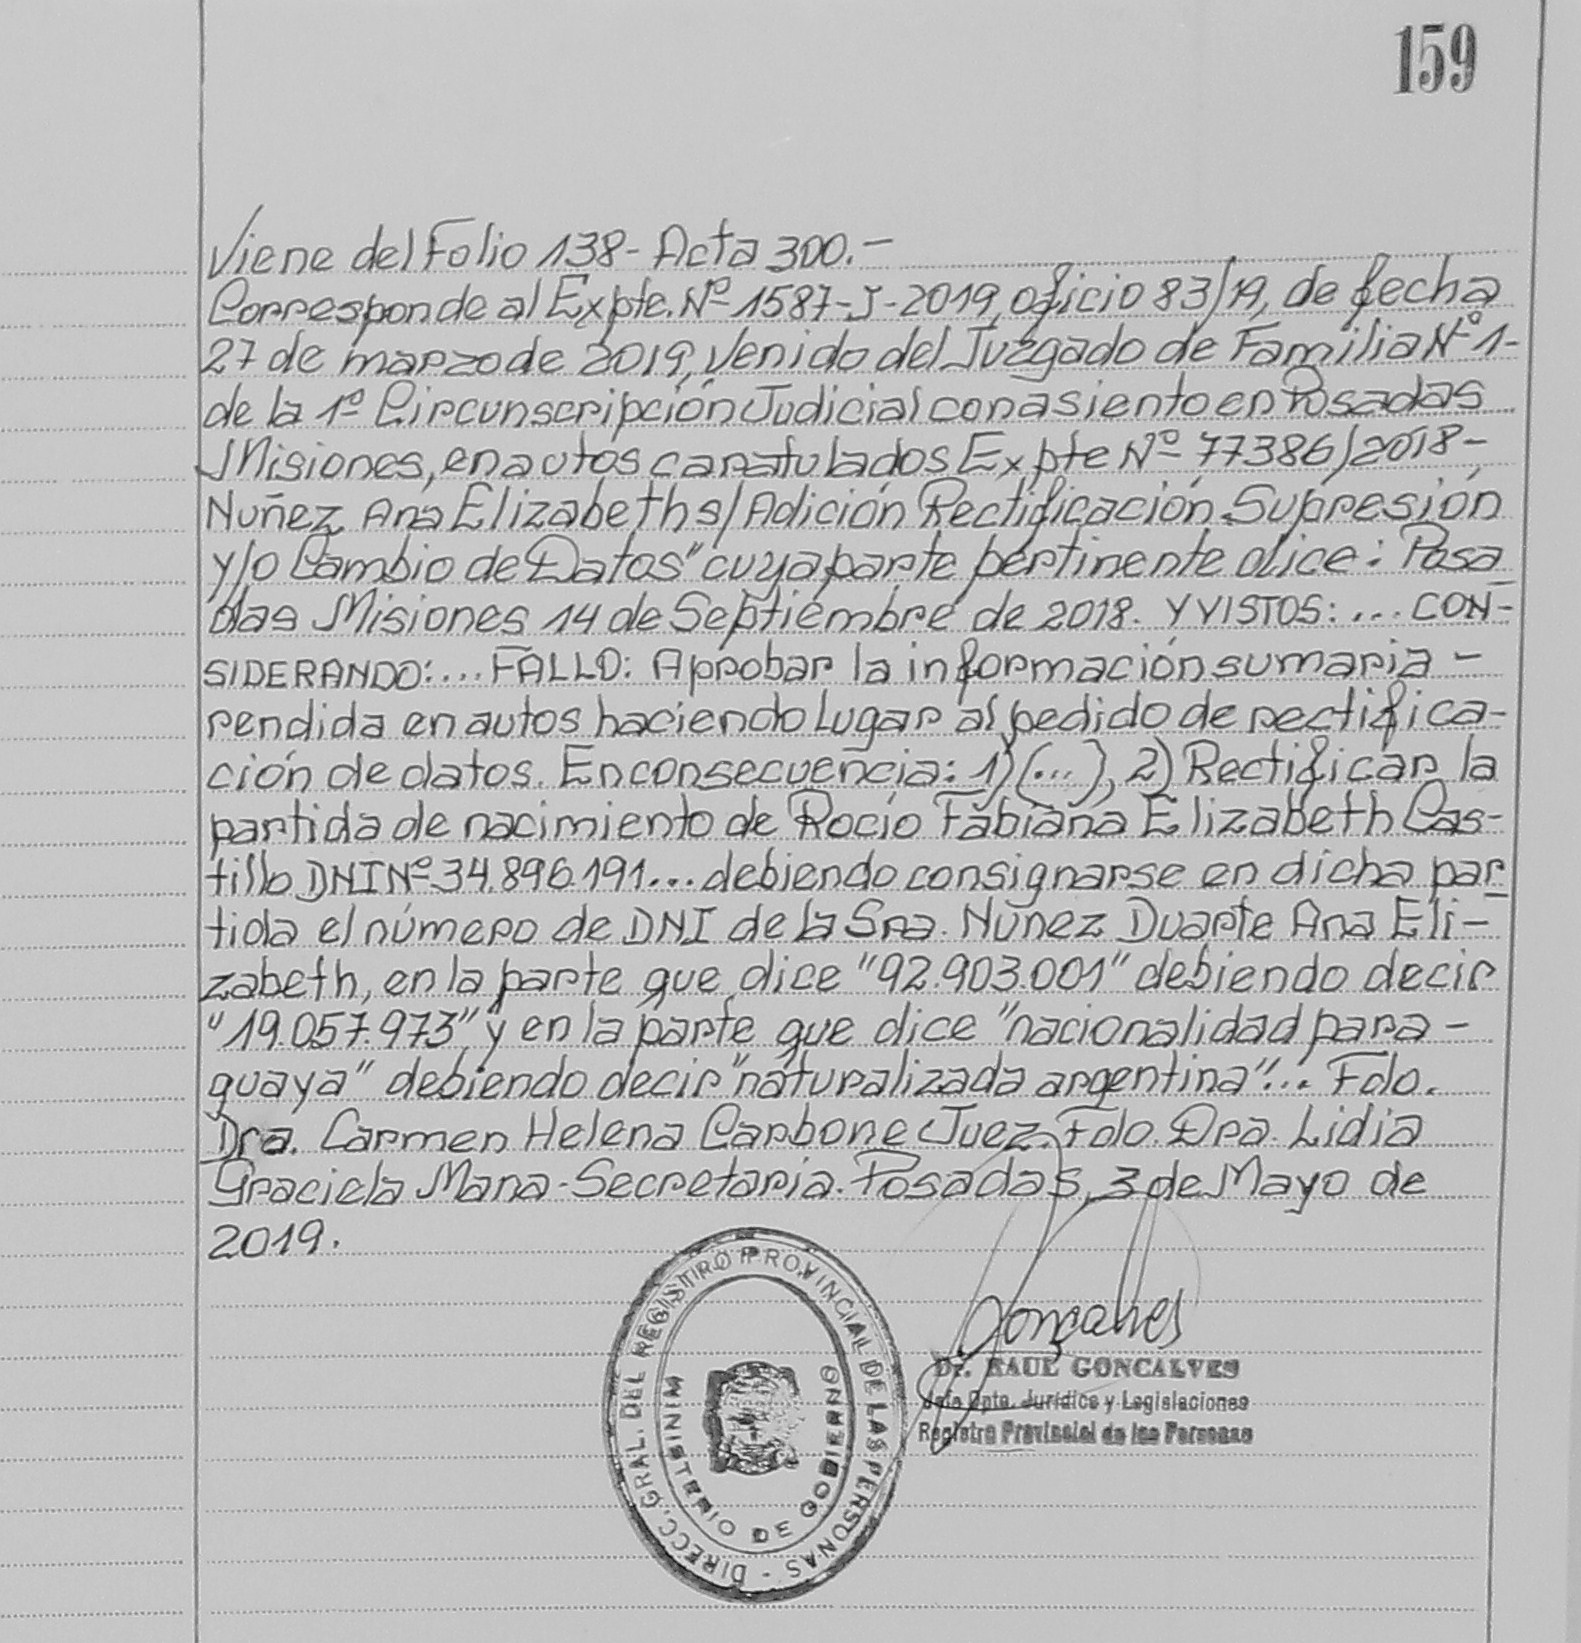 159
Viene del Folio 138- Acta 300.-
Corresponde al Expte. Nº 1587-J-2019, oficio 83/19, de fecha
27 de marzo de 2019, venido del Juzgado de Familia Nº 1-
de la 1º Circunscripción Judicial con asiento en Posadas
Misiones, en autos caratulados Expte Nº 77386/2018-
Nuñez Ana Elizabeth s/Adición Rectificación Supresión
y/o Cambio de Datos" cuya parte pertinente dice: Posa
das Misiones 14 de Septiembre de 2018. Y VISTOS:... CON-
SIDERANDO:... FALLO: Aprobar la información sumaria -
rendida en autos haciendo lugar al pedido de rectifica-
ción de datos. En consecuencia: 1) (...), 2) Rectificar la
partida de nacimiento de Rocío Fabiana Elizabeth Cas-
tillo DNI Nº 34.896.191... debiendo consignarse en dicha par
tida el número de DNI de la Sra. Nuñez Duarte Ana Eli-
zabeth, en la parte que dice "92.903.001" debiendo decir
"19.057.973" y en la parte que dice "nacionalidad para-
guaya" debiendo decir "naturalizada argentina"... Fdo.
Dra. Carmen Helena Carbone Juez. Fdo. Dra. Lidia
Graciela Mana - Secretaria. Posadas, 3 de Mayo de
2019.
DIRECC. GRAL. DEL REGISTRO PROVINCIAL DE LAS PERSONAS -
MINISTERIO DE GOBIERNO
Gonçalves
Dr. RAUL GONCALVES
Jefe Dpto. Jurídico y Legislaciones
Registro Provincial de las Personas